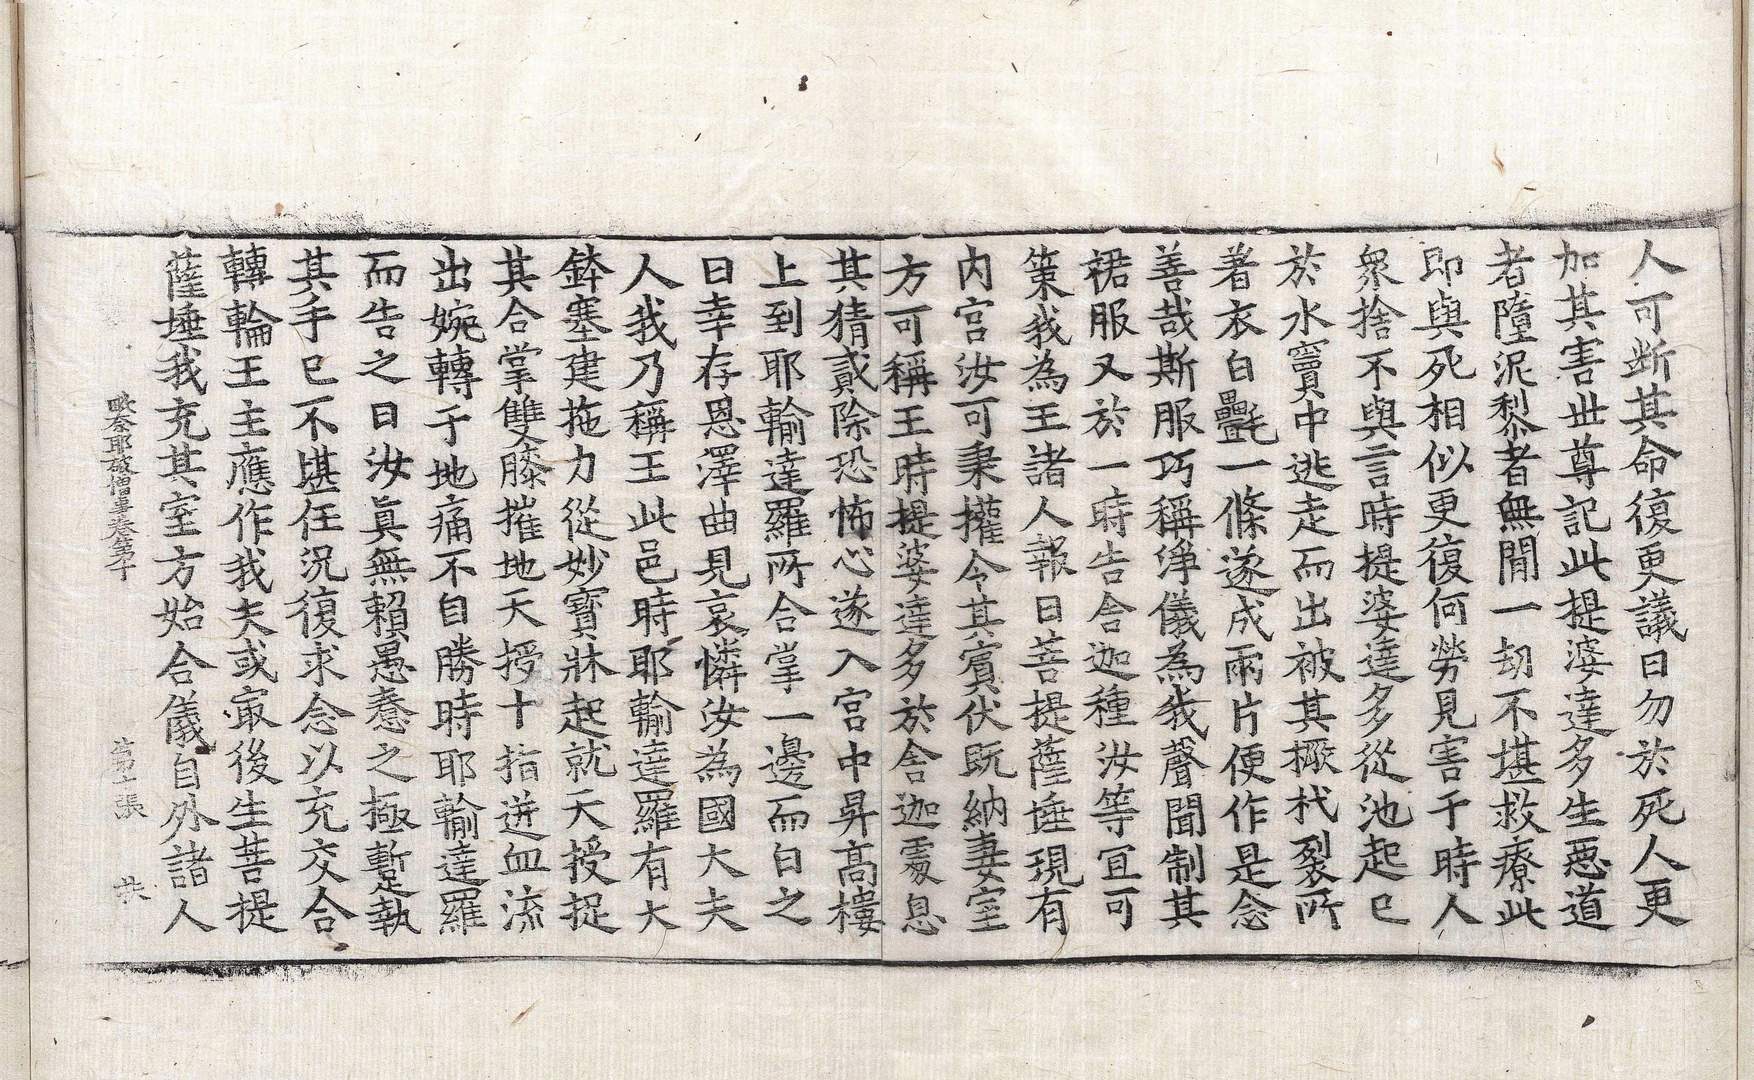 人可断其命復更議曰勿於死人更
加其害世尊記此提婆達多生惡道
者墮泥黎者無間一劫不堪救療此
即與死相似更復何勞見害于時人
衆捨不與言時提婆達多從池起已
於水竇中逃走而出被其橛杙裂所
著衣白氎一條遂成兩片便作是念
善哉斯服巧稱淨儀為我聲聞制其
裙服又於一時告舍迦種汝等宜可
策我為王諸人報曰菩提薩埵現有
内宮汝可秉權令其賓伏旣納妻室
方可稱王時提婆達多於舍迦處息
其猜貳除恐怖心遂入宮中昇高樓
上到耶輸達羅所合掌一邊而白之
曰幸存恩澤曲見哀憐汝為國大夫
人我乃稱王此邑時耶輸達羅有大
鉢塞建拖力從妙寶牀起就天授捉
其合掌雙膝摧地天授十指迸血流
出婉轉于地痛不自勝時耶輸達羅
而告之曰汝眞無賴愚惷之極暫執
其手已不堪任況復求念以充交合
轉輪王主應作我夫或㝡後生菩提
薩埵我充其室方始合儀自外諸人
毗奈耶破僧事卷第十 第 張 共